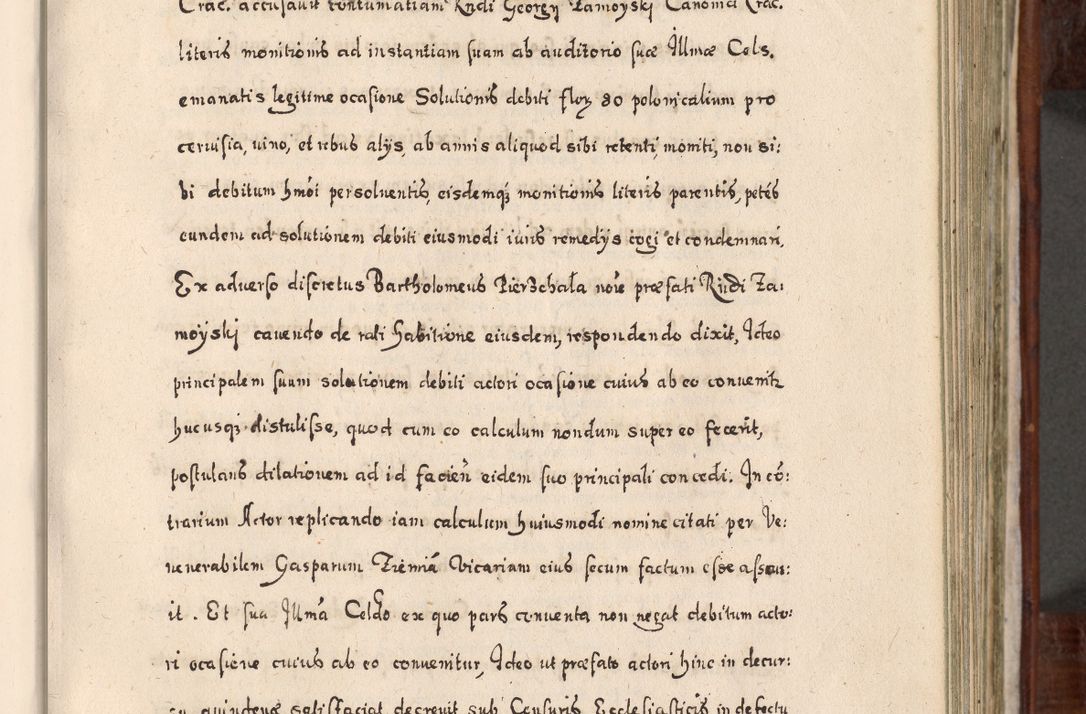 Crac. accusavit contumatiam Rndi Georgij Zamoyskj Canonici Crac.
literis monitionis ad instantiam suam ab auditorio suæ Illmæ Cels.
emanatis legitime ocasione Solutionis debiti flor 80 polonicalium pro
cervisia, vino, et rebus alys, ab annis aliquod sibi retenti, moniti, non si:
bi debitum hmoi persolventis, eisdemq; monitionis literis parentis, petes
eundem ad solutionem debiti eiusmodi iuris remedys cogi et condemnari.
Ex adverso discretus Bartholomeus Pierzchała noie præfati Rndi Za:
moyiskj cavendo de rati habitione eiusdem, respondendo dixit, Ideo
principalem suum solutionem debiti actori ocasione cuius ab eo convenitz
hucusq; distulisse, quod cum eo calculum nondum super eo fecerit,
postulans dilationem ad id facien eidem suo principali concedi. In co:
trarium Actor replicando iam calculum huiusmodi nomine citati per Ve:
nerabilem Gasparum Ziemia Vicarium eius secum factum esse asseru:
it. Et sua Illma Celsdo ex quo pars conventa non negat debitum acto:
ri ocasione cuius ab eo convenitur, Ideo ut præfato actori hinc in decur:
su quindenæ satisfaciat decrevit sub Censuris Ecclesiasticis in defectu